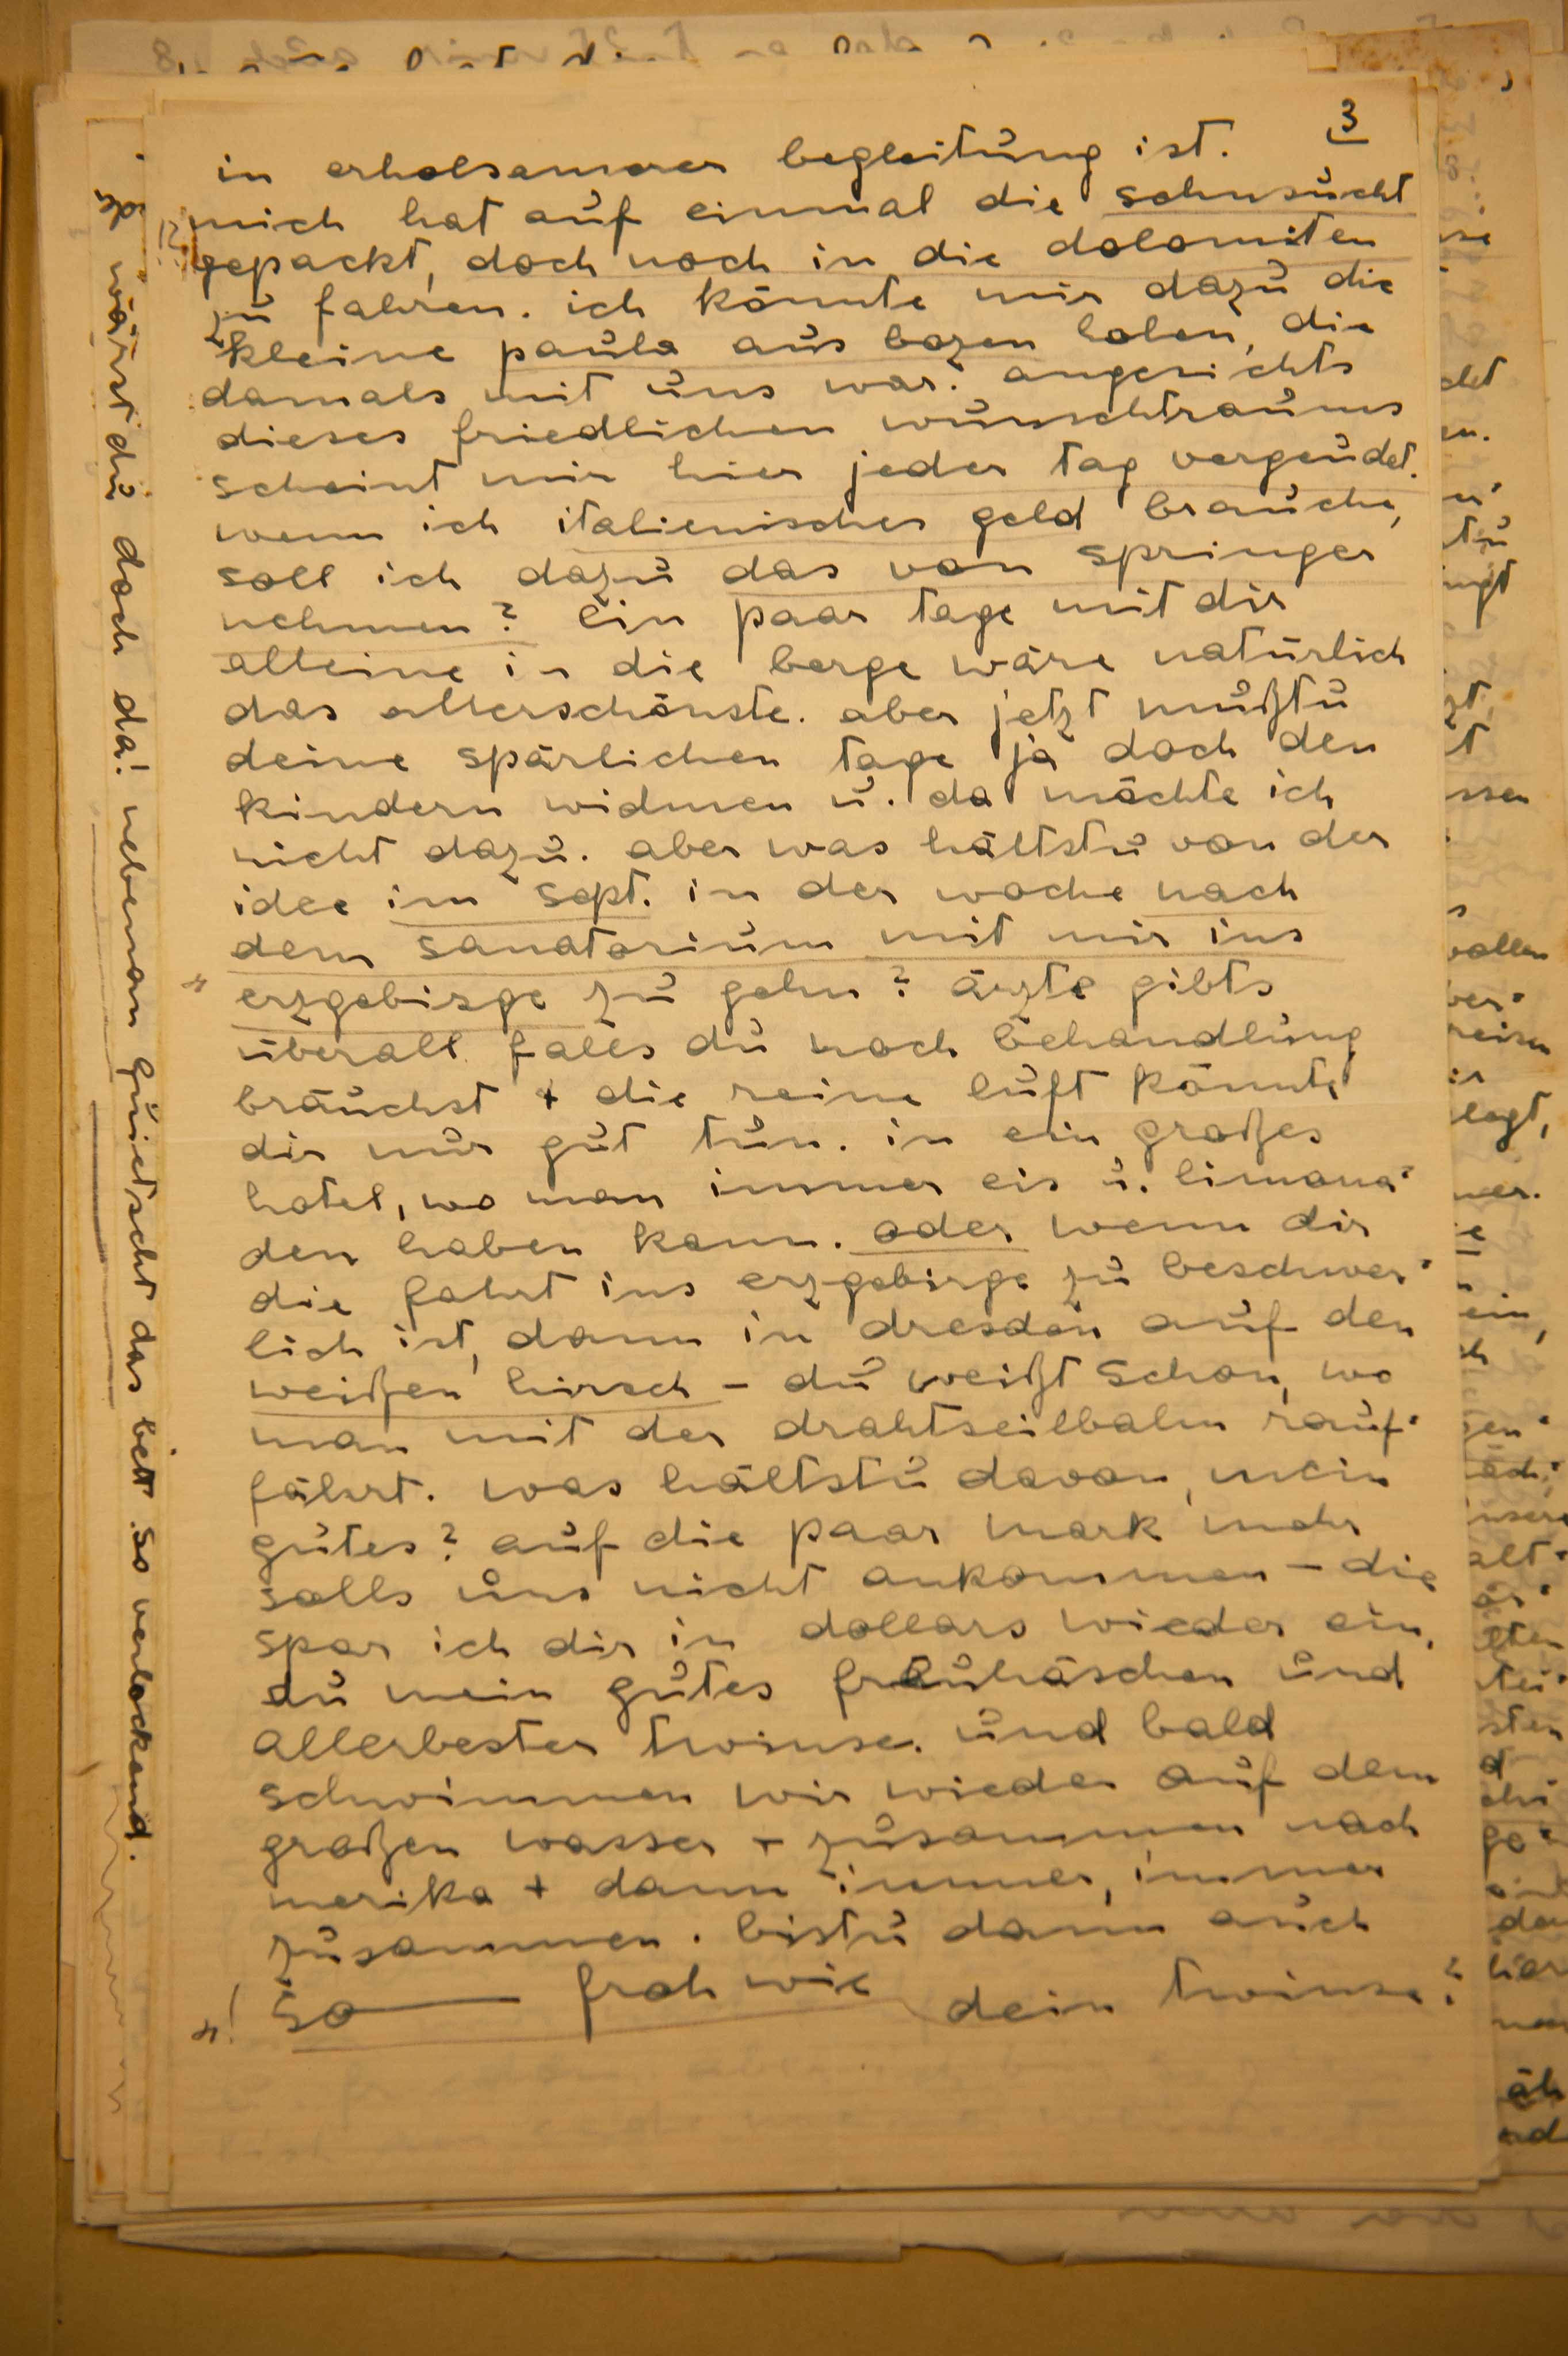 3
in erholsamerer begleitung ist.
mich hat auf einmal die sehnsucht
gepackt, doch noch in die dolomiten
zu fahren. ich könnte mir dazu die
kleine paula aus bozen holen, die
damals mit uns war. angesichts
dieses friedlichen wunschtraums
scheint mir hier jeder tag vergeudet.
wenn ich italienisches geld brauche,
soll ich dazu das von springer
nehmen? ein paar tage mit dir
alleine in die berge wäre natürlich
das allerschönste. aber jetzt mußtu
deine spärlichen tage ja doch den
kindern widmen u. da möchte ich
nicht dazu. aber was hältstu von der
idee im sept. in der woche nach
dem sanatorium mit mir ins
erzgebirge zu gehn? ärzte gibts
überall falls du noch behandlung
bräuchst + die reine luft könnte
dir nur gut tun. in ein großes
hotel, wo man immer eis u. limona-
den haben kann. oder wenn dir
die fahrt ins erzgebirge zu beschwer-
lich ist, dann in dresden auf den
weißen hirsch - du weißt schon, wo
man mit der drahtseilbahn rauf-
fährt. was hältstu davon, mein
gutes? auf die paar mark mehr
solls uns nicht ankommen - die
spar ich dir in dollars wieder ein,
du mein gutes frauhäschen und
allerbester twinse. und bald
schwimmen wir wieder auf dem
großen wasser + zusammen nach
merika + dann immer, immer
zusammen. bistu dann auch
so — froh wie dein twinse?
wärst du doch da! nebenan quietscht das bett so verlockend.